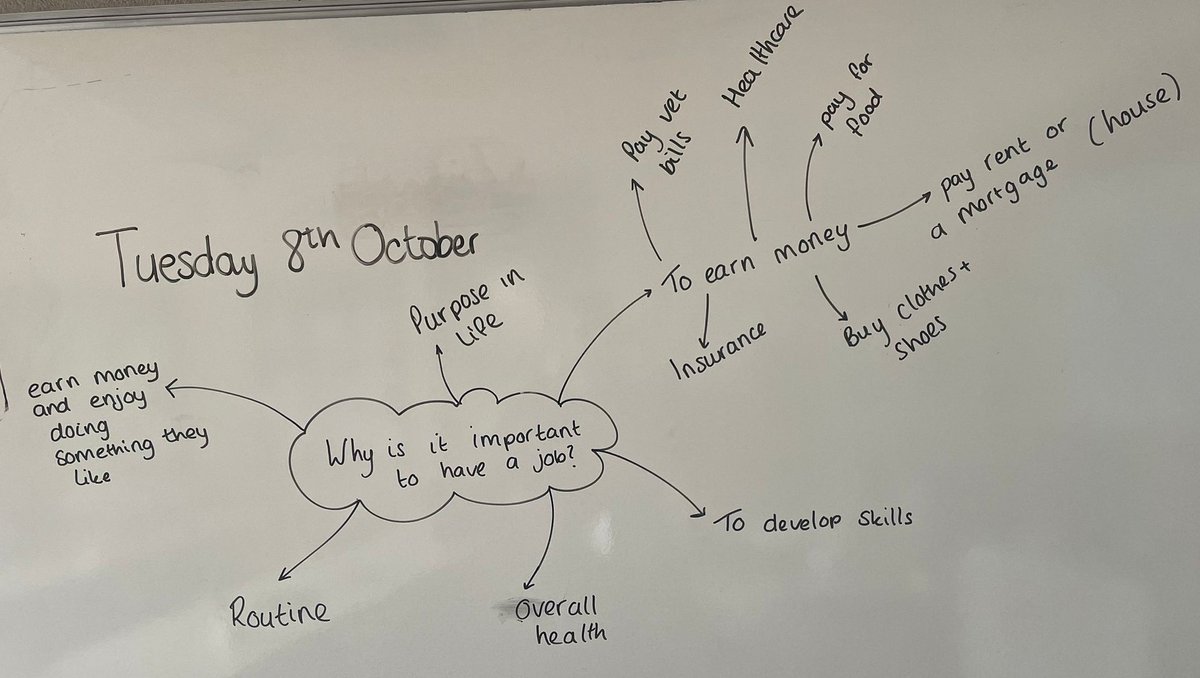 Tuesday 8th October
Why is it important
to have a job?
earn money
and enjoy
doing
something they
like
Purpose in
life
To earn money
Pay vet
bills
Healthcare
pay for
food
pay rent or
a mortgage (house)
Buy clothes +
shoes
Insurance
To develop skills
Overall
health
Routine